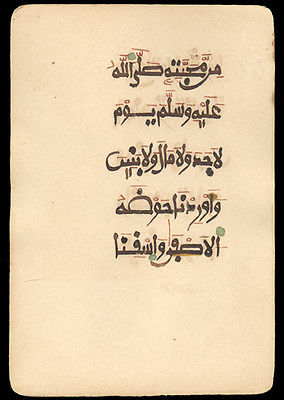 مِن مَّحَبَّتِهِ صَلَّى اللَّهُ
عَلَيْهِ وَسَلَّمَ يَوْمَ
لاجد ولا مال ولا بنين
واوردنا حوضه
الاصفى واسقنا